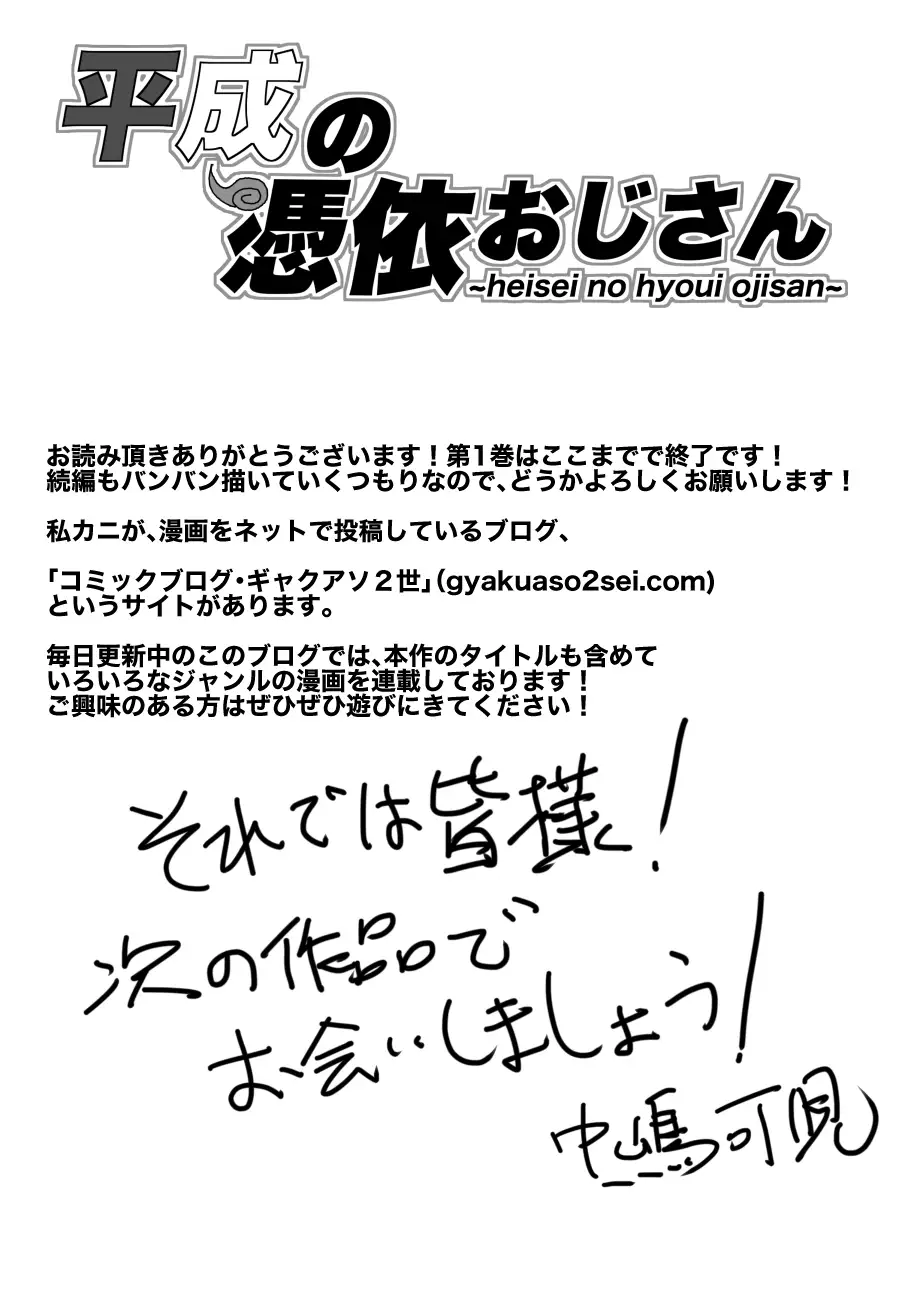 平成の
憑依おじさん
~heisei no hyoui ojisan~
お読み頂きありがとうございます！第1巻はここまでで終了です！
続編もバンバン描いていくつもりなので、どうかよろしくお願いします！
私カニが、漫画をネットで投稿しているブログ、
「コミックブログ・ギャクアソ２世」（gyakuaso2sei.com)
というサイトがあります。
毎日更新中のこのブログでは、本作のタイトルも含めて
いろいろなジャンルの漫画を連載しております！
ご興味のある方はぜひぜひ遊びにきてください！
それでは皆様！
次の作品で
お会いしましょう！
中嶋可